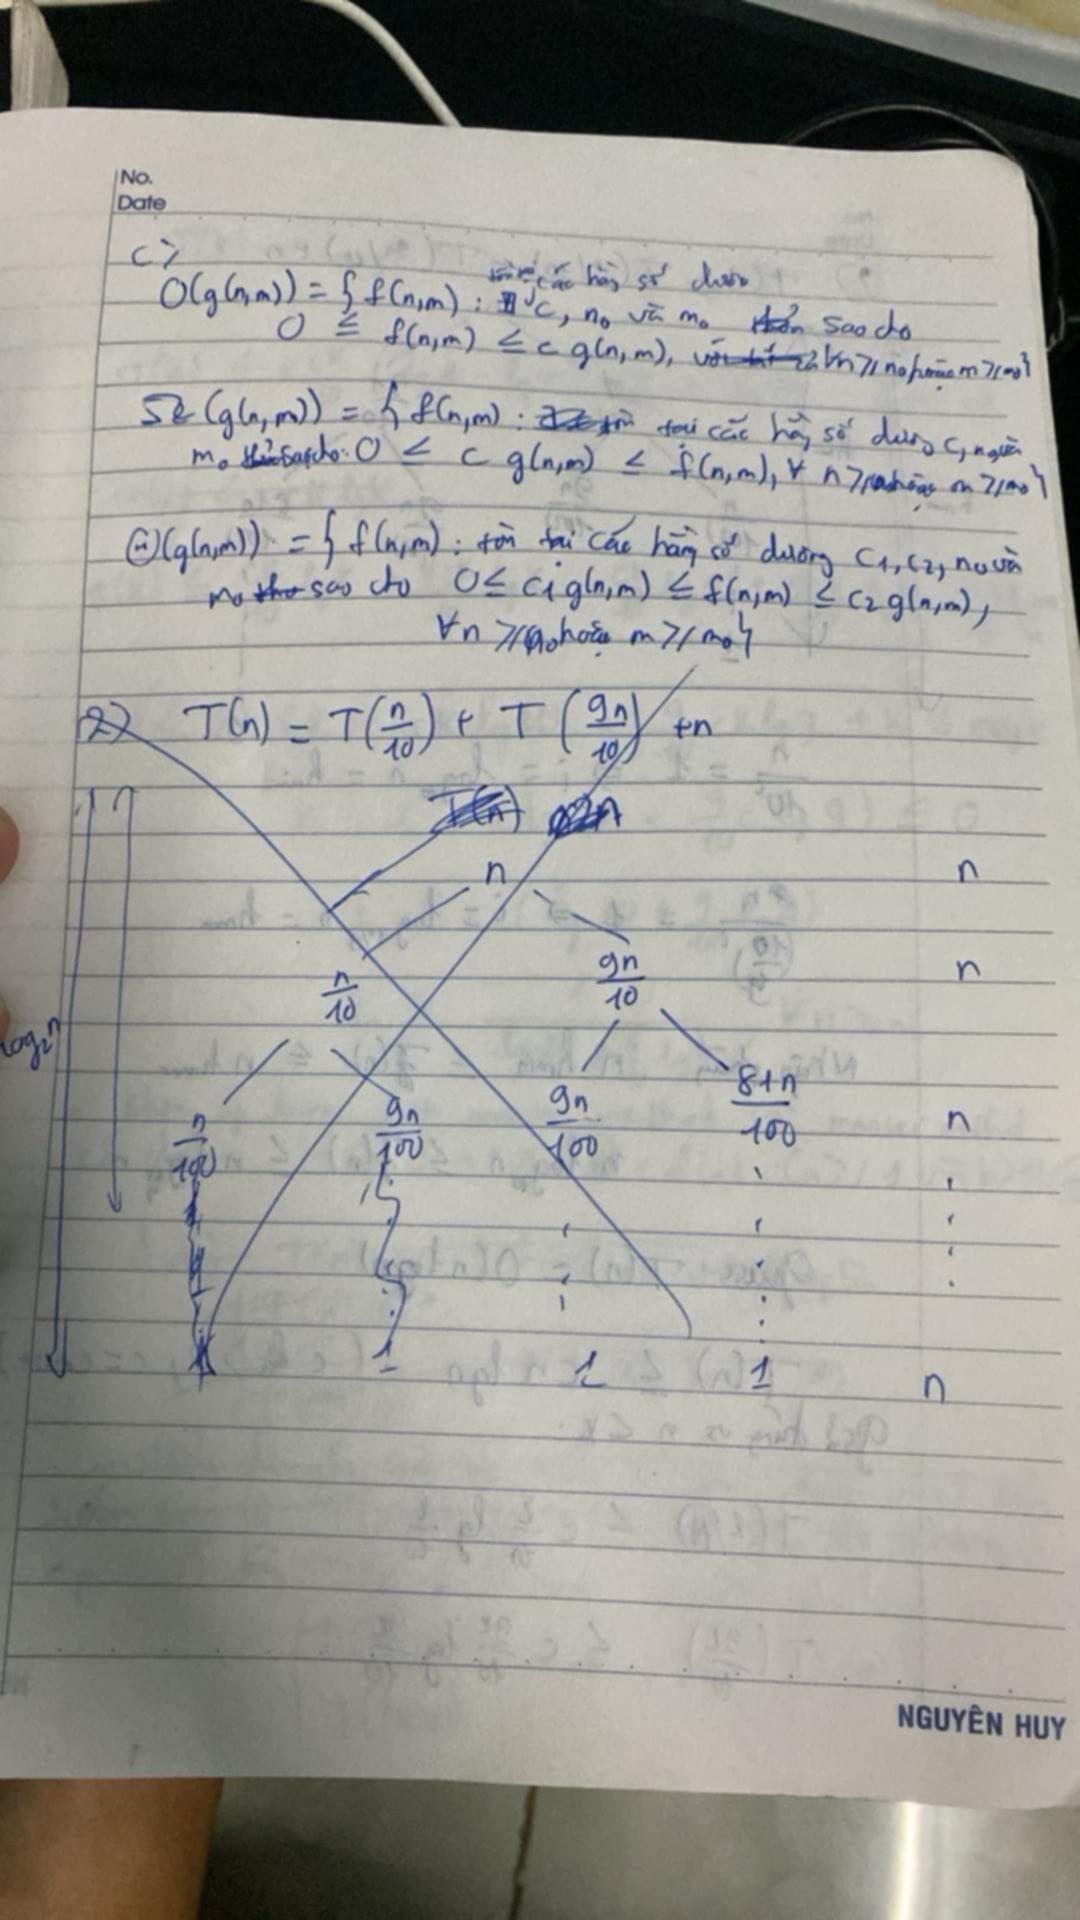 No.
Date
c>
các hằng số dương
O(g(n,m)) = { f(n,m) : c, n₀ và m₀ sao cho
0 ≤ f(n,m) ≤ c g(n,m), ∀n ≥ n₀ hoặc m ≥ m₀}
Ω(g(n,m)) = { f(n,m) : tồn tại các hằng số dương c, n₀ và
m₀ sao cho 0 ≤ c g(n,m) ≤ f(n,m), ∀ n ≥ n₀ hoặc m ≥ m₀}
Θ(g(n,m)) = { f(n,m) : tồn tại các hằng số dương c₁, c₂, n₀ và
m₀ sao cho 0 ≤ c₁g(n,m) ≤ f(n,m) ≤ c₂g(n,m),
∀n ≥ n₀ hoặc m ≥ m₀}
2) T(n) = T(n/10) + T(9n/10) + n
T(n) n
n n
n/10 9n/10 n
log₂n
n/100 9n/100 9n/100 81n/100 n
1 1 1 n
NGUYÊN HUY